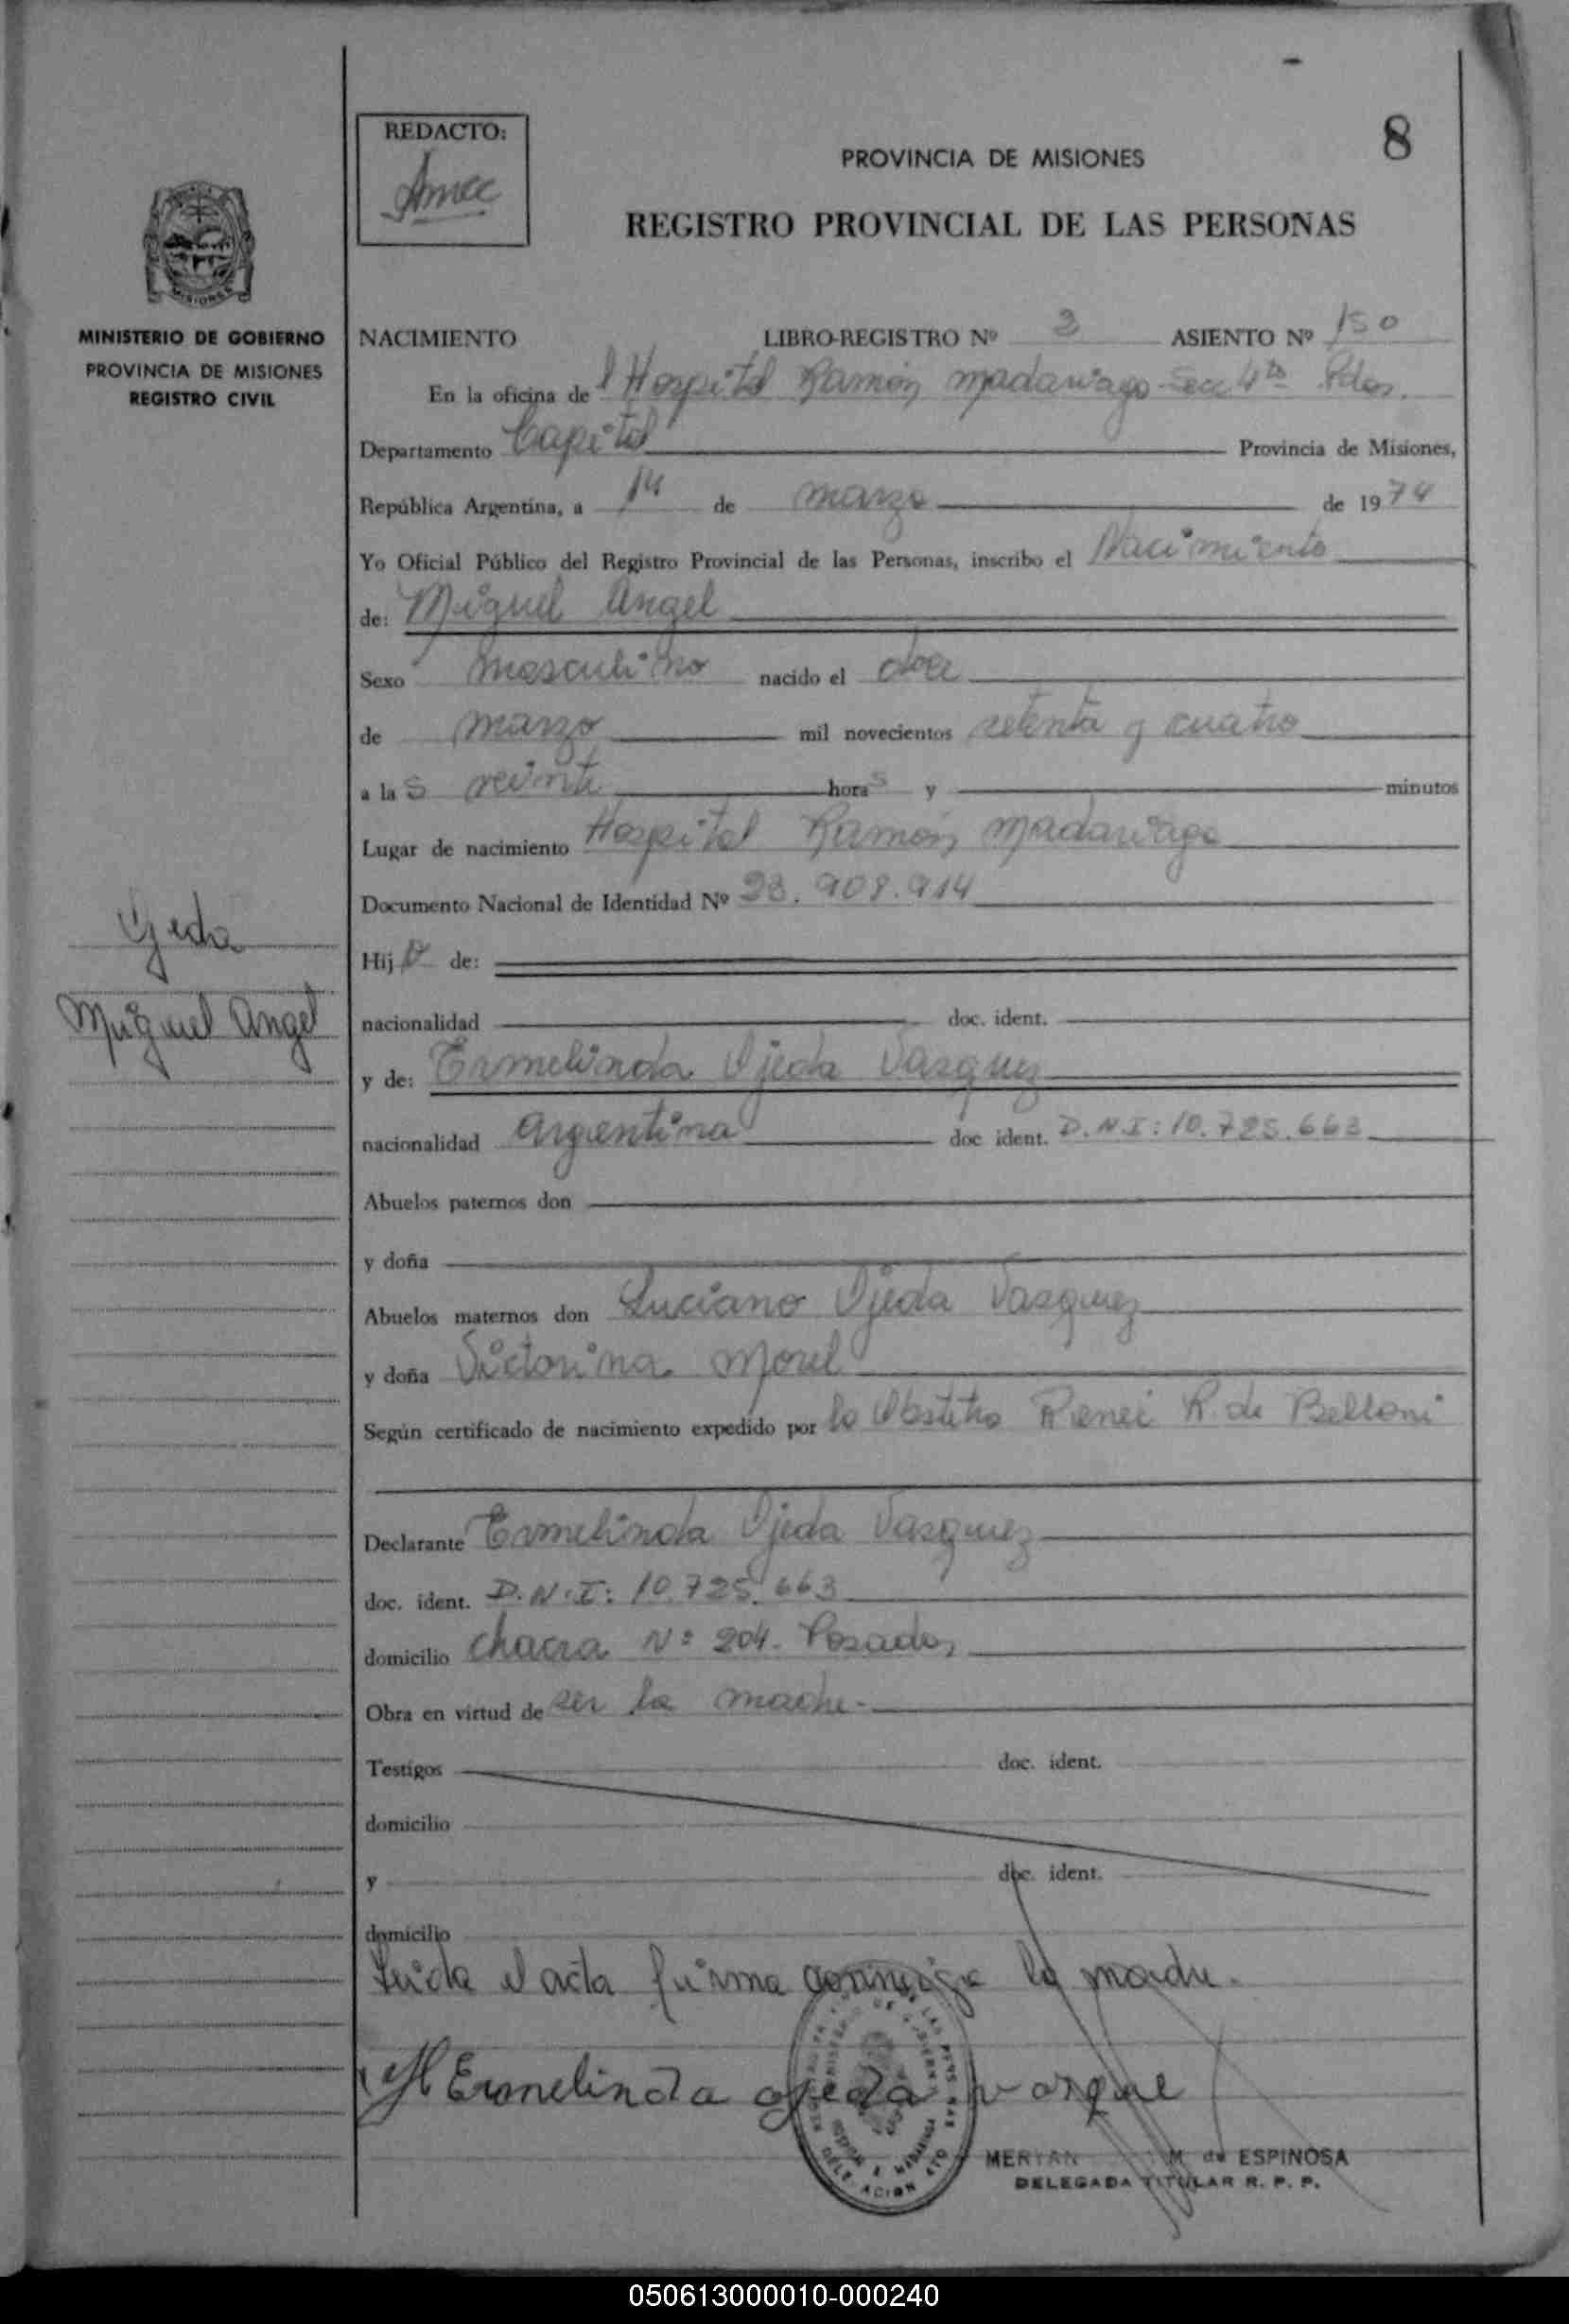 REDACTO:
Amec
8
PROVINCIA DE MISIONES
REGISTRO PROVINCIAL DE LAS PERSONAS
MISIONES
MINISTERIO DE GOBIERNO
PROVINCIA DE MISIONES
REGISTRO CIVIL
NACIMIENTO LIBRO-REGISTRO Nº 2 ASIENTO Nº 150
En la oficina de l Hospital Ramón Madariaga Sec 4ta Pdas.
Departamento Capital Provincia de Misiones,
República Argentina, a 14 de marzo de 1974
Yo Oficial Público del Registro Provincial de las Personas, inscribo el Nacimiento
de: Miguel Angel
Sexo masculino nacido el doce
de marzo mil novecientos setenta y cuatro
a las veinte horas y minutos
Lugar de nacimiento Hospital Ramón Madariaga
Documento Nacional de Identidad Nº 23.908.914
Ojeda
Miguel Angel
Hijo de:
nacionalidad doc. ident.
y de: Ermelinda Ojeda Vasquez
nacionalidad argentina doc ident. D.N.I: 10.725.663
Abuelos paternos don
y doña
Abuelos maternos don Luciano Ojeda Vasquez
y doña Victorina Morel
Según certificado de nacimiento expedido por la Obstetra Renei R. de Belloni
Declarante Ermelinda Ojeda Vasquez
doc. ident. D.N.I: 10.725.663
domicilio chacra Nº 204. Posadas
Obra en virtud de ser la madre.
Testigos doc. ident.
domicilio
y doc. ident.
domicilio
Leida el acta firma conmigo la madre.
Ermelinda ojeda vasque
MERYAN M de ESPINOSA
DELEGADA TITULAR R. P. P.
050613000010-000240